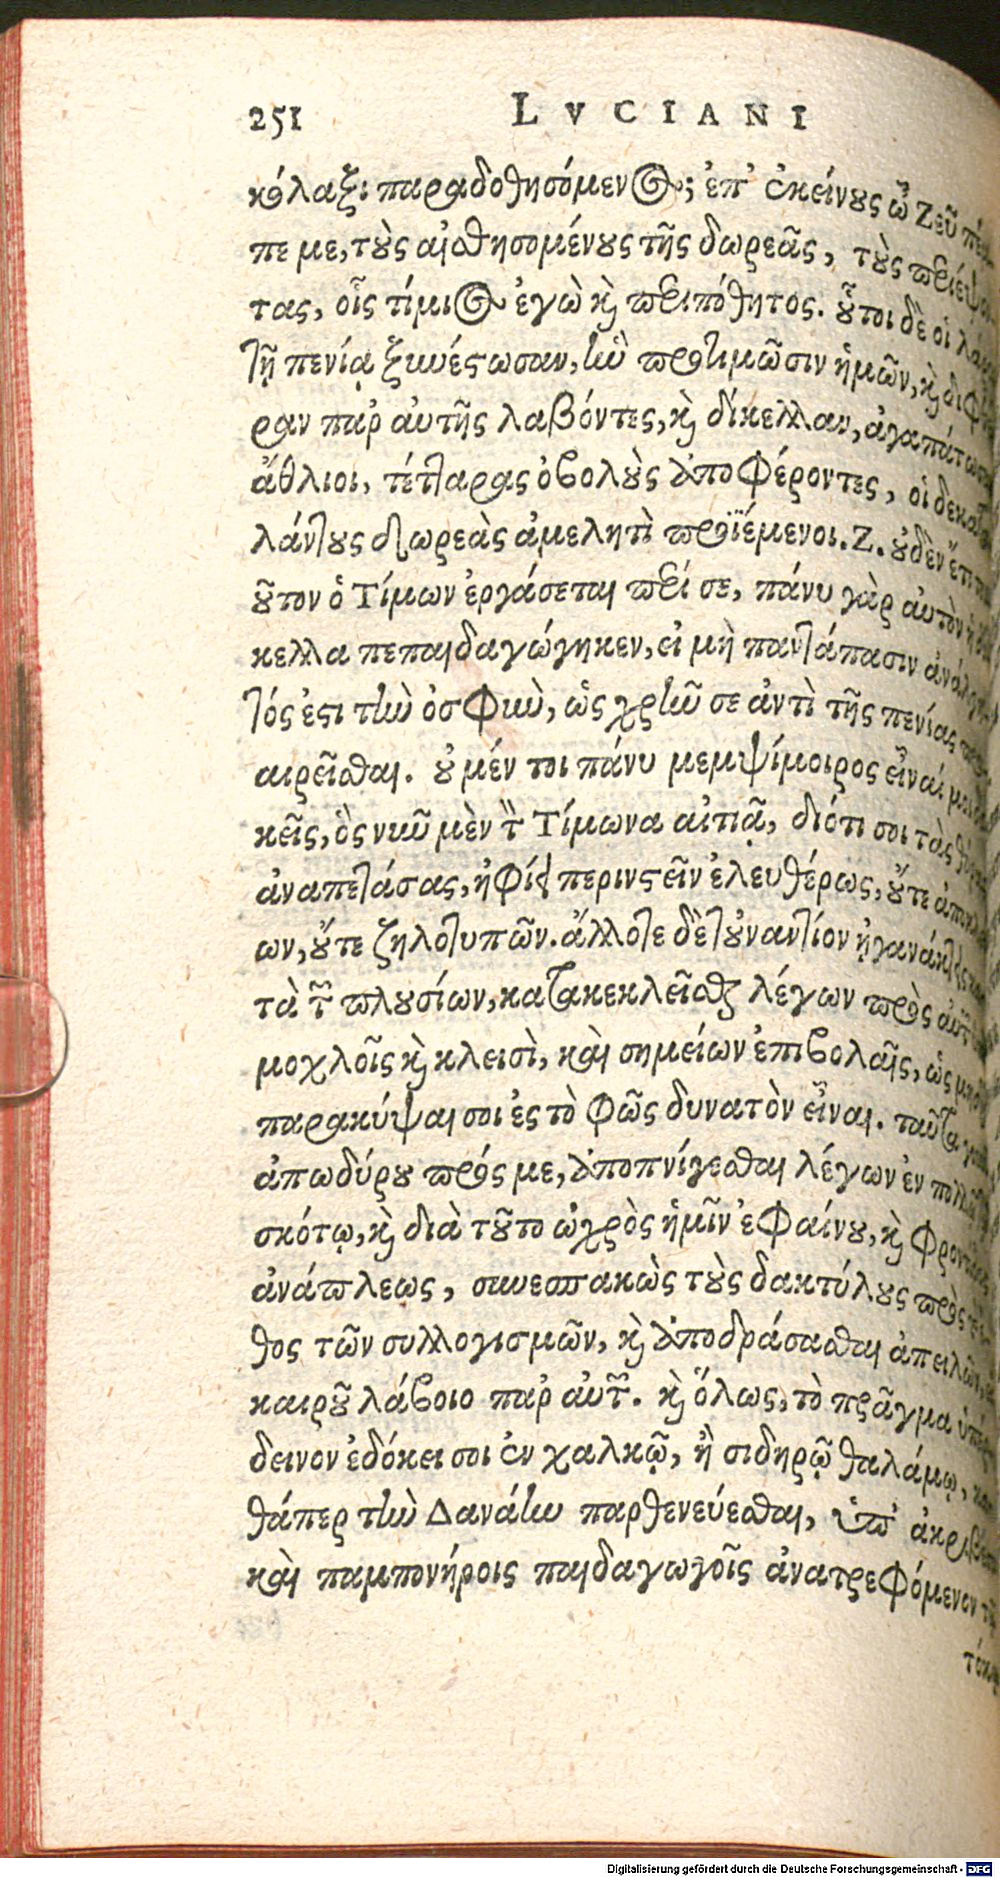 251 LVCIANI
κόλαξι παραδοθησόμενος; ἐπ' ἐκείνους ὦ Ζεῦ
πε με, τοὺς αἰσθησομένους τῆς δωρεᾶς, τοὺς
τας, οἷς τίμιος ἐγὼ καὶ περιπόθητος. οὗτοι δὲ οἱ
τῇ πενίᾳ ξυνέστωσαν, ἣν προτιμῶσιν ἡμῶν, καὶ
ραν παρ' αὐτῆς λαβόντες, καὶ δίκελλαν, ἀγαπάτωσαν
ἄθλιοι, τέτταρας ὀβολοὺς ἀποφέροντες, οἱ
λάντους δωρεὰς ἀμελητὶ προϊέμενοι. Ζ. οὐδὲν ἔτι
οῦτον ὁ Τίμων ἐργάσεται περί σε, πάνυ γὰρ αὐτὸν ἡ
κελλα πεπαιδαγώγηκεν, εἰ μὴ παντάπασιν
τός ἐστι τὴν ὀσφὺν, ὡς χρῆν σε ἀντὶ τῆς πενίας
αιρεῖσθαι. οὐ μέν τοι πάνυ μεμψίμοιρος εἶναί μοι
κεῖς, ὃς νῦν μὲν τὸν Τίμωνα αἰτιᾷ, διότι σοι τὰς
ἀναπετάσας, ἠφίει περινοστεῖν ἐλευθέρως, οὔτε
ων, οὔτε ζηλοτυπῶν. ἄλλοτε δὲ τοὐναντίον ἠγανάκτεις
τὰ τῶν πλουσίων, κατακεκλεῖσθαι λέγων πρὸς αὐτῶν
μοχλοῖς καὶ κλεισὶ, καὶ σημείων ἐπιβολαῖς, ὡς
παρακύψαι σοι ἐς τὸ φῶς δυνατὸν εἶναι. ταῦτα
ἀπωδύρου πρός με, ἀποπνίγεσθαι λέγων ἐν πολλῷ
σκότῳ, καὶ διὰ τοῦτο ὠχρὸς ἡμῖν ἐφαίνου, καὶ
ἀνάπλεως, συνεσπακὼς τοὺς δακτύλους πρὸς
θος τῶν συλλογισμῶν, καὶ ἀποδράσασθαι ἀπειλῶν,
καιροῦ λάβοιο παρ' αὐτῶν. καὶ ὅλως, τὸ πρᾶγμα
δεινον ἐδόκει σοι ἐν χαλκῷ, ἢ σιδηρῷ θαλάμῳ,
θάπερ τὴν Δανάην παρθενεύεσθαι, ὑπ' ἀκριβέσι
καὶ παμπονήροις παιδαγωγοῖς ἀνατρεφόμενον
Digitalisierung gefördert durch die Deutsche Forschungsgemeinschaft - DFG